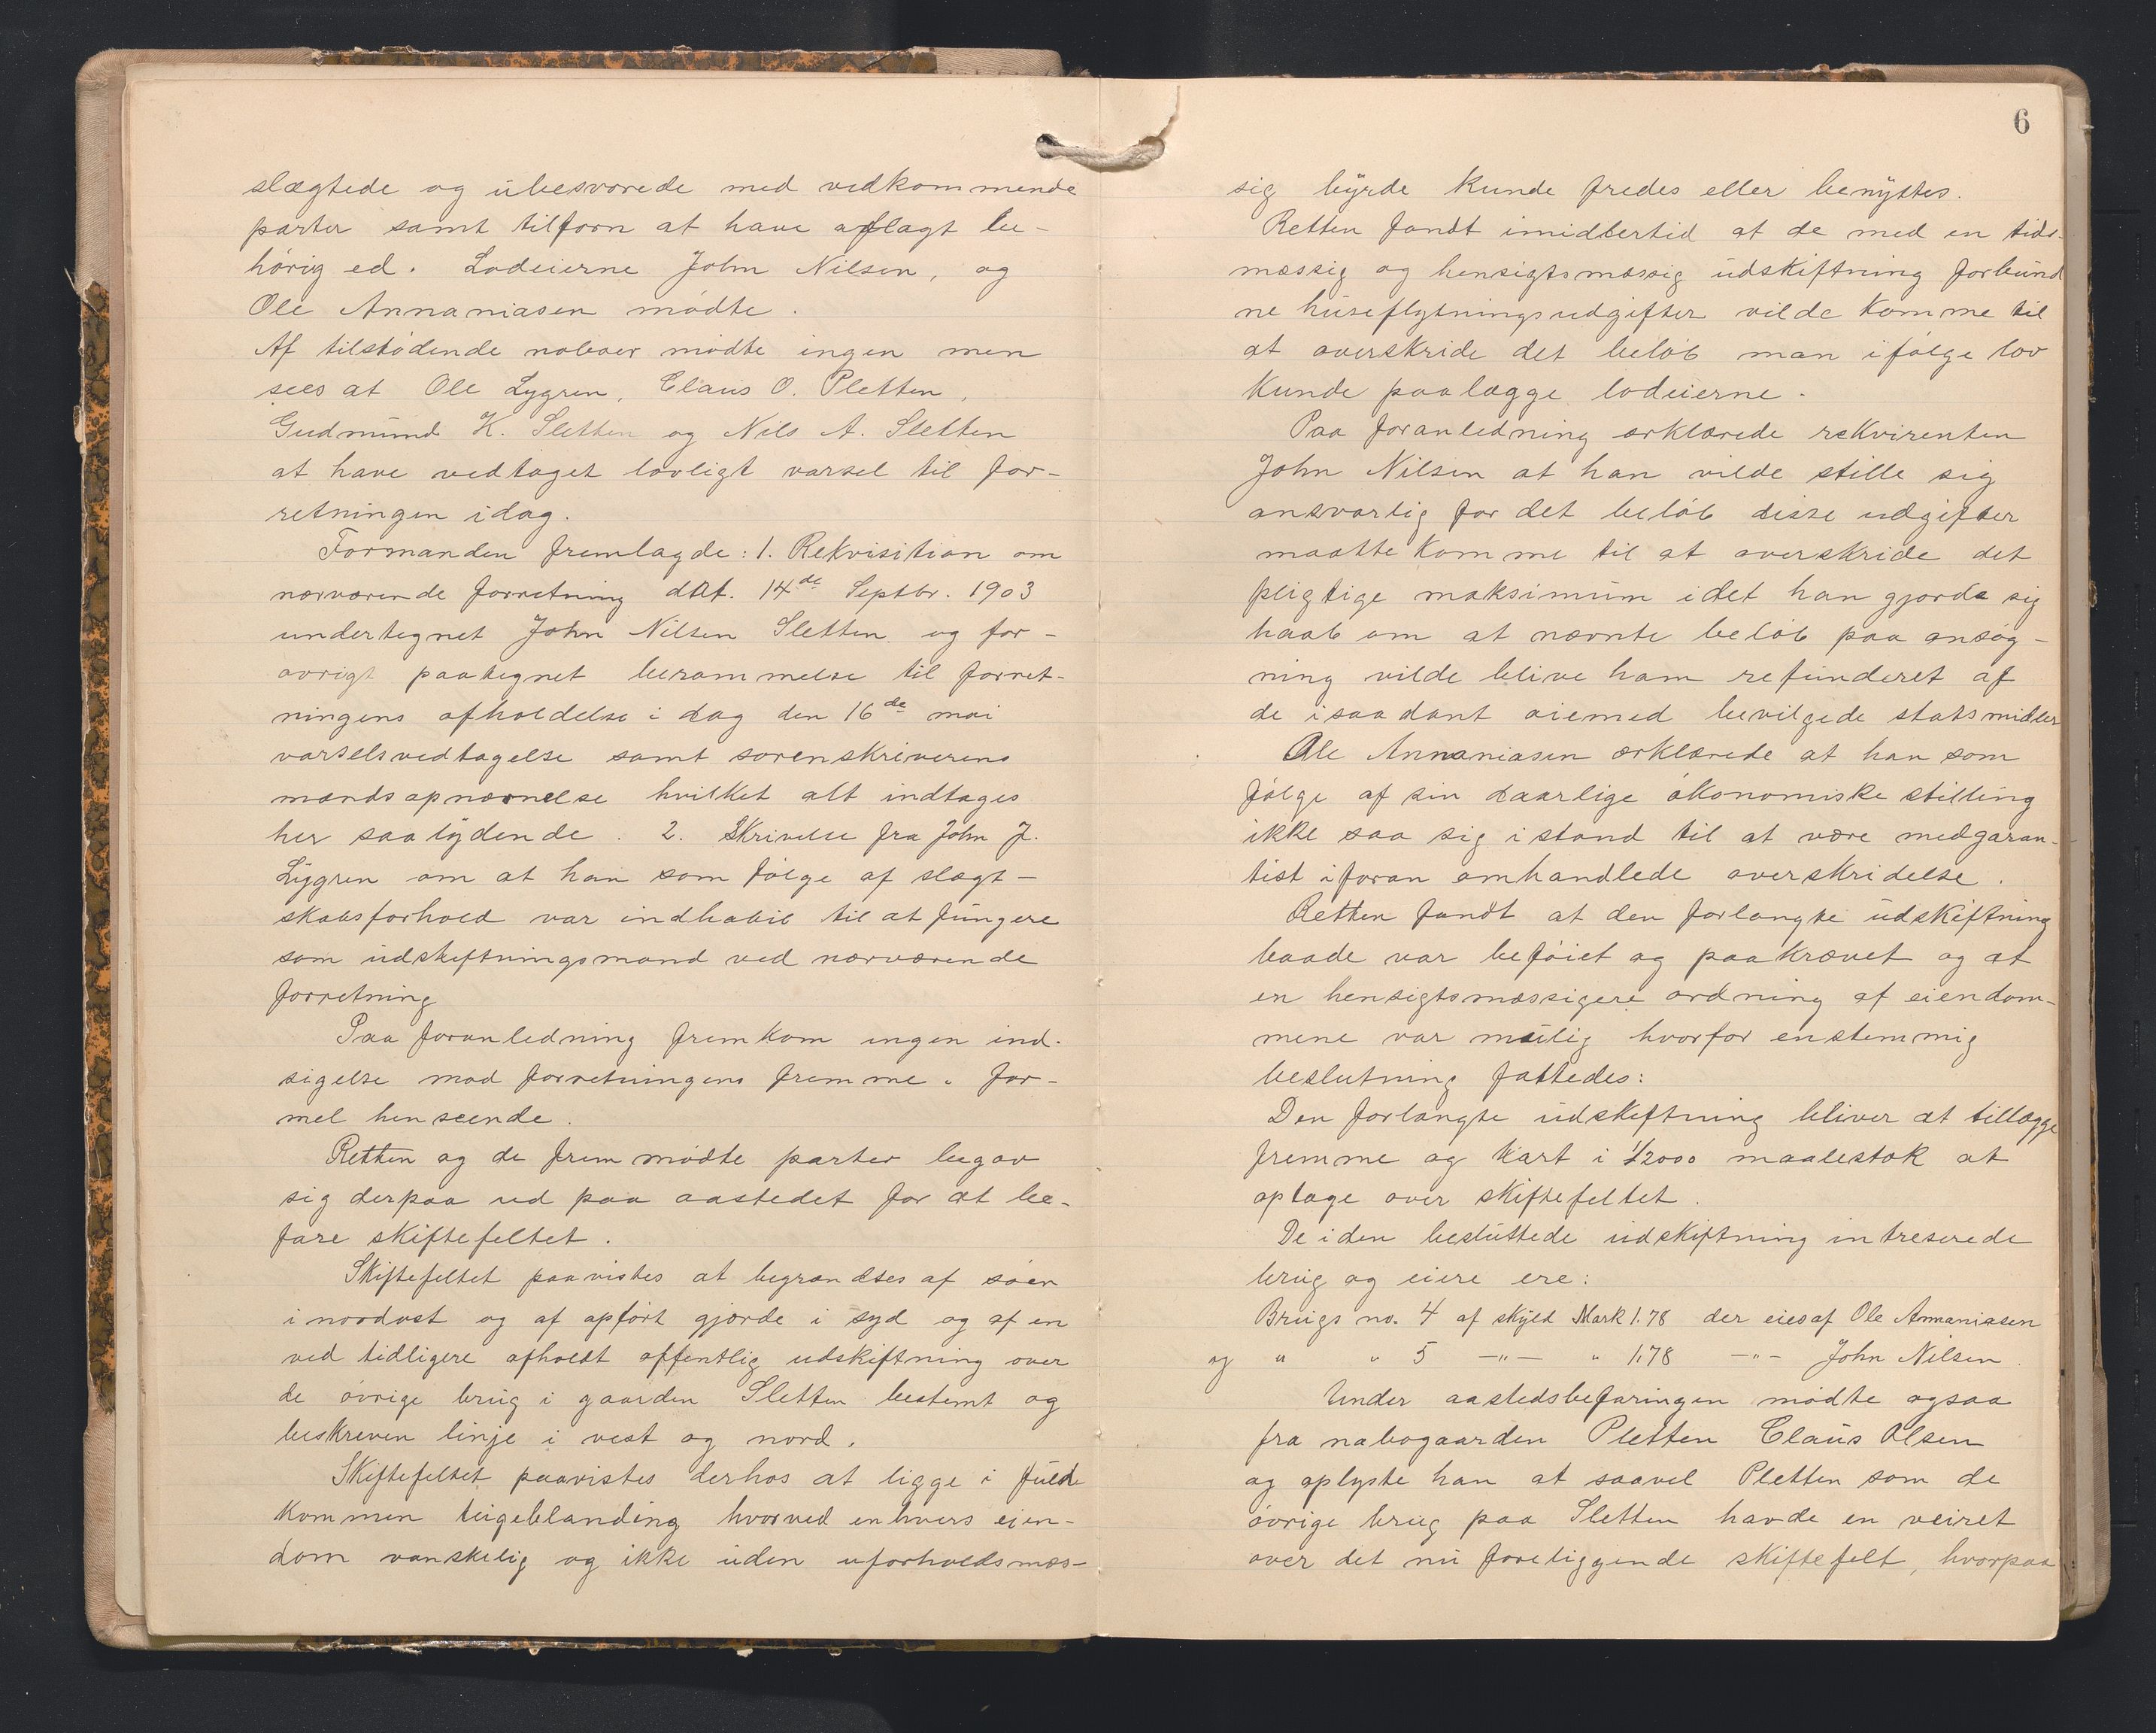 slægtede og ubesvorede med vedkommende
parter samt tilforn at have aflagt be-
hørig ed. Lodeierne John Nilsen, og
Ole Annaniasen mødte.
Af tilstødende naboer mødte ingen men
sees at Ole Lygren, Claus O. Pletten,
Gudmund K. Sletten og Nils A. Sletten
at have vedtaget lovligt varsel til for-
retningen idag.
Formanden fremlagde: 1. Rekvisition om
nærværende forretning dat. 14de Septbr. 1903
undertegnet John Nilsen Sletten og for-
øvrigt paategnet berammelse til forret-
ningens afholdelse i dag den 16de mai
varselsvedtagelse samt sorenskriverens
mandsopnævnelse hvilket alt indtages
her saalydende. 2. Skrivelse fra John J.
Lyggren om at han som følge af slægt-
skabsforhold var indhabil til at fungere
som udskiftningsmand ved nærværende
forretning
Paa foranledning fremkom ingen ind-
sigelse mod forretningens fremme i for-
mel henseende.
Retten og de fremmødte parter begav
sig derpaa ud paa aastedet for at be-
fare skiftefeltet.
Skiftefeltet paavistes at begrændses af søen
i nordost og af opført gjærde i syd og af en
ved tidligere afholdt offentlig udskiftning over
de øvrige brug i gaarden Sletten bestemt og
beskreven linje i vest og nord.
Skiftefeltet paavistes derhos at ligge i fuld
kommen teigeblanding hvorved enhvers eien-
dom vanskelig og ikke uden uforholdsmæs-
6
sig byrde kunde fredes eller benyttes.
Retten fandt imidlertid at de med en tids-
mæssig og hensigtsmæssig udskiftning forbund
ne huseflytningsudgifter vilde komme til
at overskride det beløb man ifølge lov
kunde paalægge lodeierne.
Paa foranledning erklærede rekvirenten
John Nilsen at han vilde stille sig
ansvarlig for det beløb disse udgifter
maatte komme til at overskride det
pligtige maksimum idet han gjorde sig
haab om at nævnte beløb paa ansøg-
ning vilde blive ham refunderet af
de isaadant øiemed bevilgede statsmidler
Ole Annaniasen erklærede at han som
følge af sin daarlige økonomiske stilling
ikke saa sig istand til at være medgaran-
tist iforan omhandlede overskridelse.
Retten fandt at den forlangte udskiftning
baade var beføiet og paakrævet og at
en hensigtsmæssigere ordning af eiendom-
mene var mulig hvorfor enstemmig
beslutning fattedes:
Den forlangte udskiftning bliver at tillægge
fremme og kart i 1/2000 maalestok at
optage over skiftefeltet.
De iden besluttede udskiftning intreserede
brug og eiere ere:
Brugs no. 4 af skyld Mark 1.78 der eies af Ole Annaniasen
og " " 5 -"- " 1.78 -"- John Nilsen.
Under aastedsbefaringen mødte ogsaa
fra nabogaarden Pletten Claus Olsen
og oplyste han at saavel Pletten som de
øvrige brug paa Sletten havde en veiret
over det nu foreliggende skiftefelt, hvorpaa